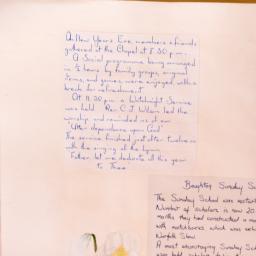 On New Year's Eve, members & friends
gathered at the Chapel at 8.30 p.m.
A Social programme being arranged
in ½ hours by family groups, original
items, and games, were enjoyed, with a
break for refreshment.
At 11.30 p.m. a Watchnight Service
was held. Rev. C.J. Wilson led the
worship and reminded us of our
"Utter dependence upon God"
The service finished just after twelve
with the singing of the hymn
Father, let me dedicate all this year
to Thee.
Boughton Sunday
The Sunday School was
Number of scholars is now 20
months they had constructed a
with matchboxes which was
Norfolk Show.
A most encouraging Sunday